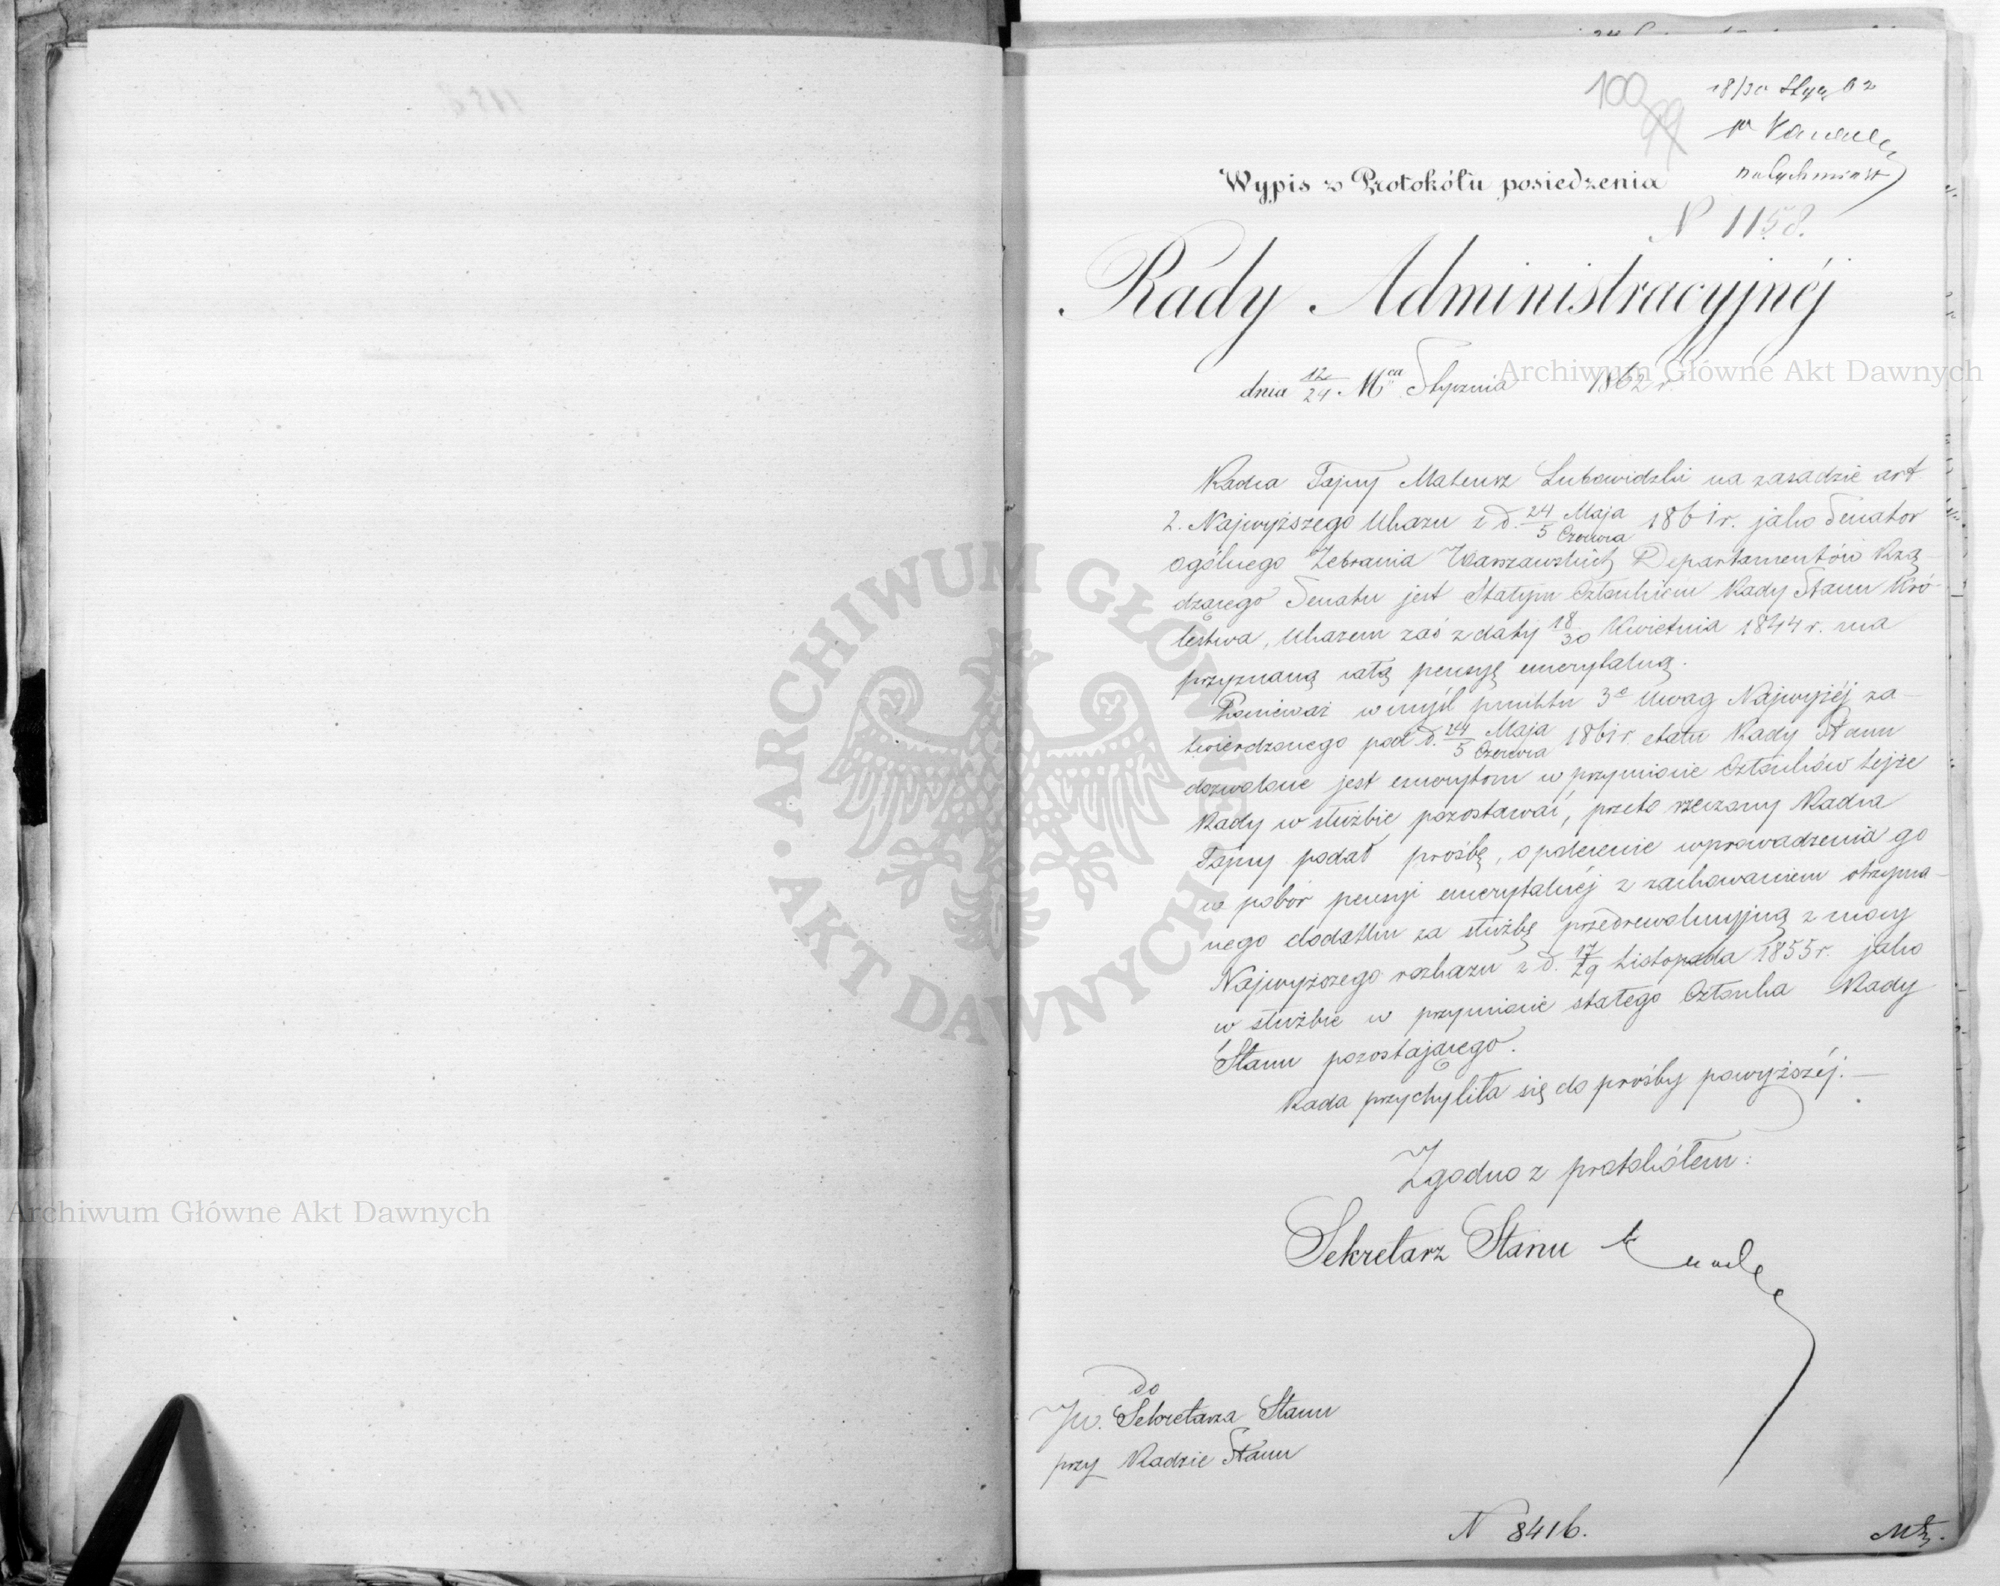 100
99
18/30 Stycz 62
natychmiast
Wypis z Protokółu posiedzenia
N 1158.
Rady Administracyjnéj
dnia 12/24 Mca Stycznia 1862 r
Radca Tajny Mateusz Lubowidzki na zasadzie art
2. Najwyższego Ukazu z d. 24 Maja / 5 Czerwca 1861 r. jako Senator
ogólnego Zebrania Warszawskich Departamentów Rzą-
dzącego Senatu jest Stałym Członkiem Rady Stanu Kró-
lestwa, Ukazem zaś z daty 18/30 Kwietnia 1844 r. ma
przyznaną całą pensyę emerytalną.
Ponieważ w myśl punktu 3e Uwag Najwyżéj za-
twierdzonego pod d. 24 Maja / 5 Czerwca 1861 r. etatu Rady Stanu
dozwolone jest emerytom w przymiocie Członków tejże
Rady w służbie pozostawać, przeto rzeczony Radca
Tajny podał prośbę, o polecenie wprowadzenia go
w pobór pensyi emerytalnéj z zachowaniem otrzyma-
nego dodatku za służbę przedrewolucyjną z mocy
Najwyższego rozkazu z d. 17/29 Listopada 1855 r. jako
w służbie w przymiocie stałego Członka Rady
Stanu pozostającego.
Rada przychyliła się do prośby powyższéj. —
Zgodno z protokółem:
Sekretarz Stanu
Do
JW. Sekretarza Stanu
przy Radzie Stanu
N 8416.
Archiwum Główne Akt Dawnych
Archiwum Główne Akt Dawnych
ARCHIWUM GŁÓWNE · AKT DAWNYCH ·